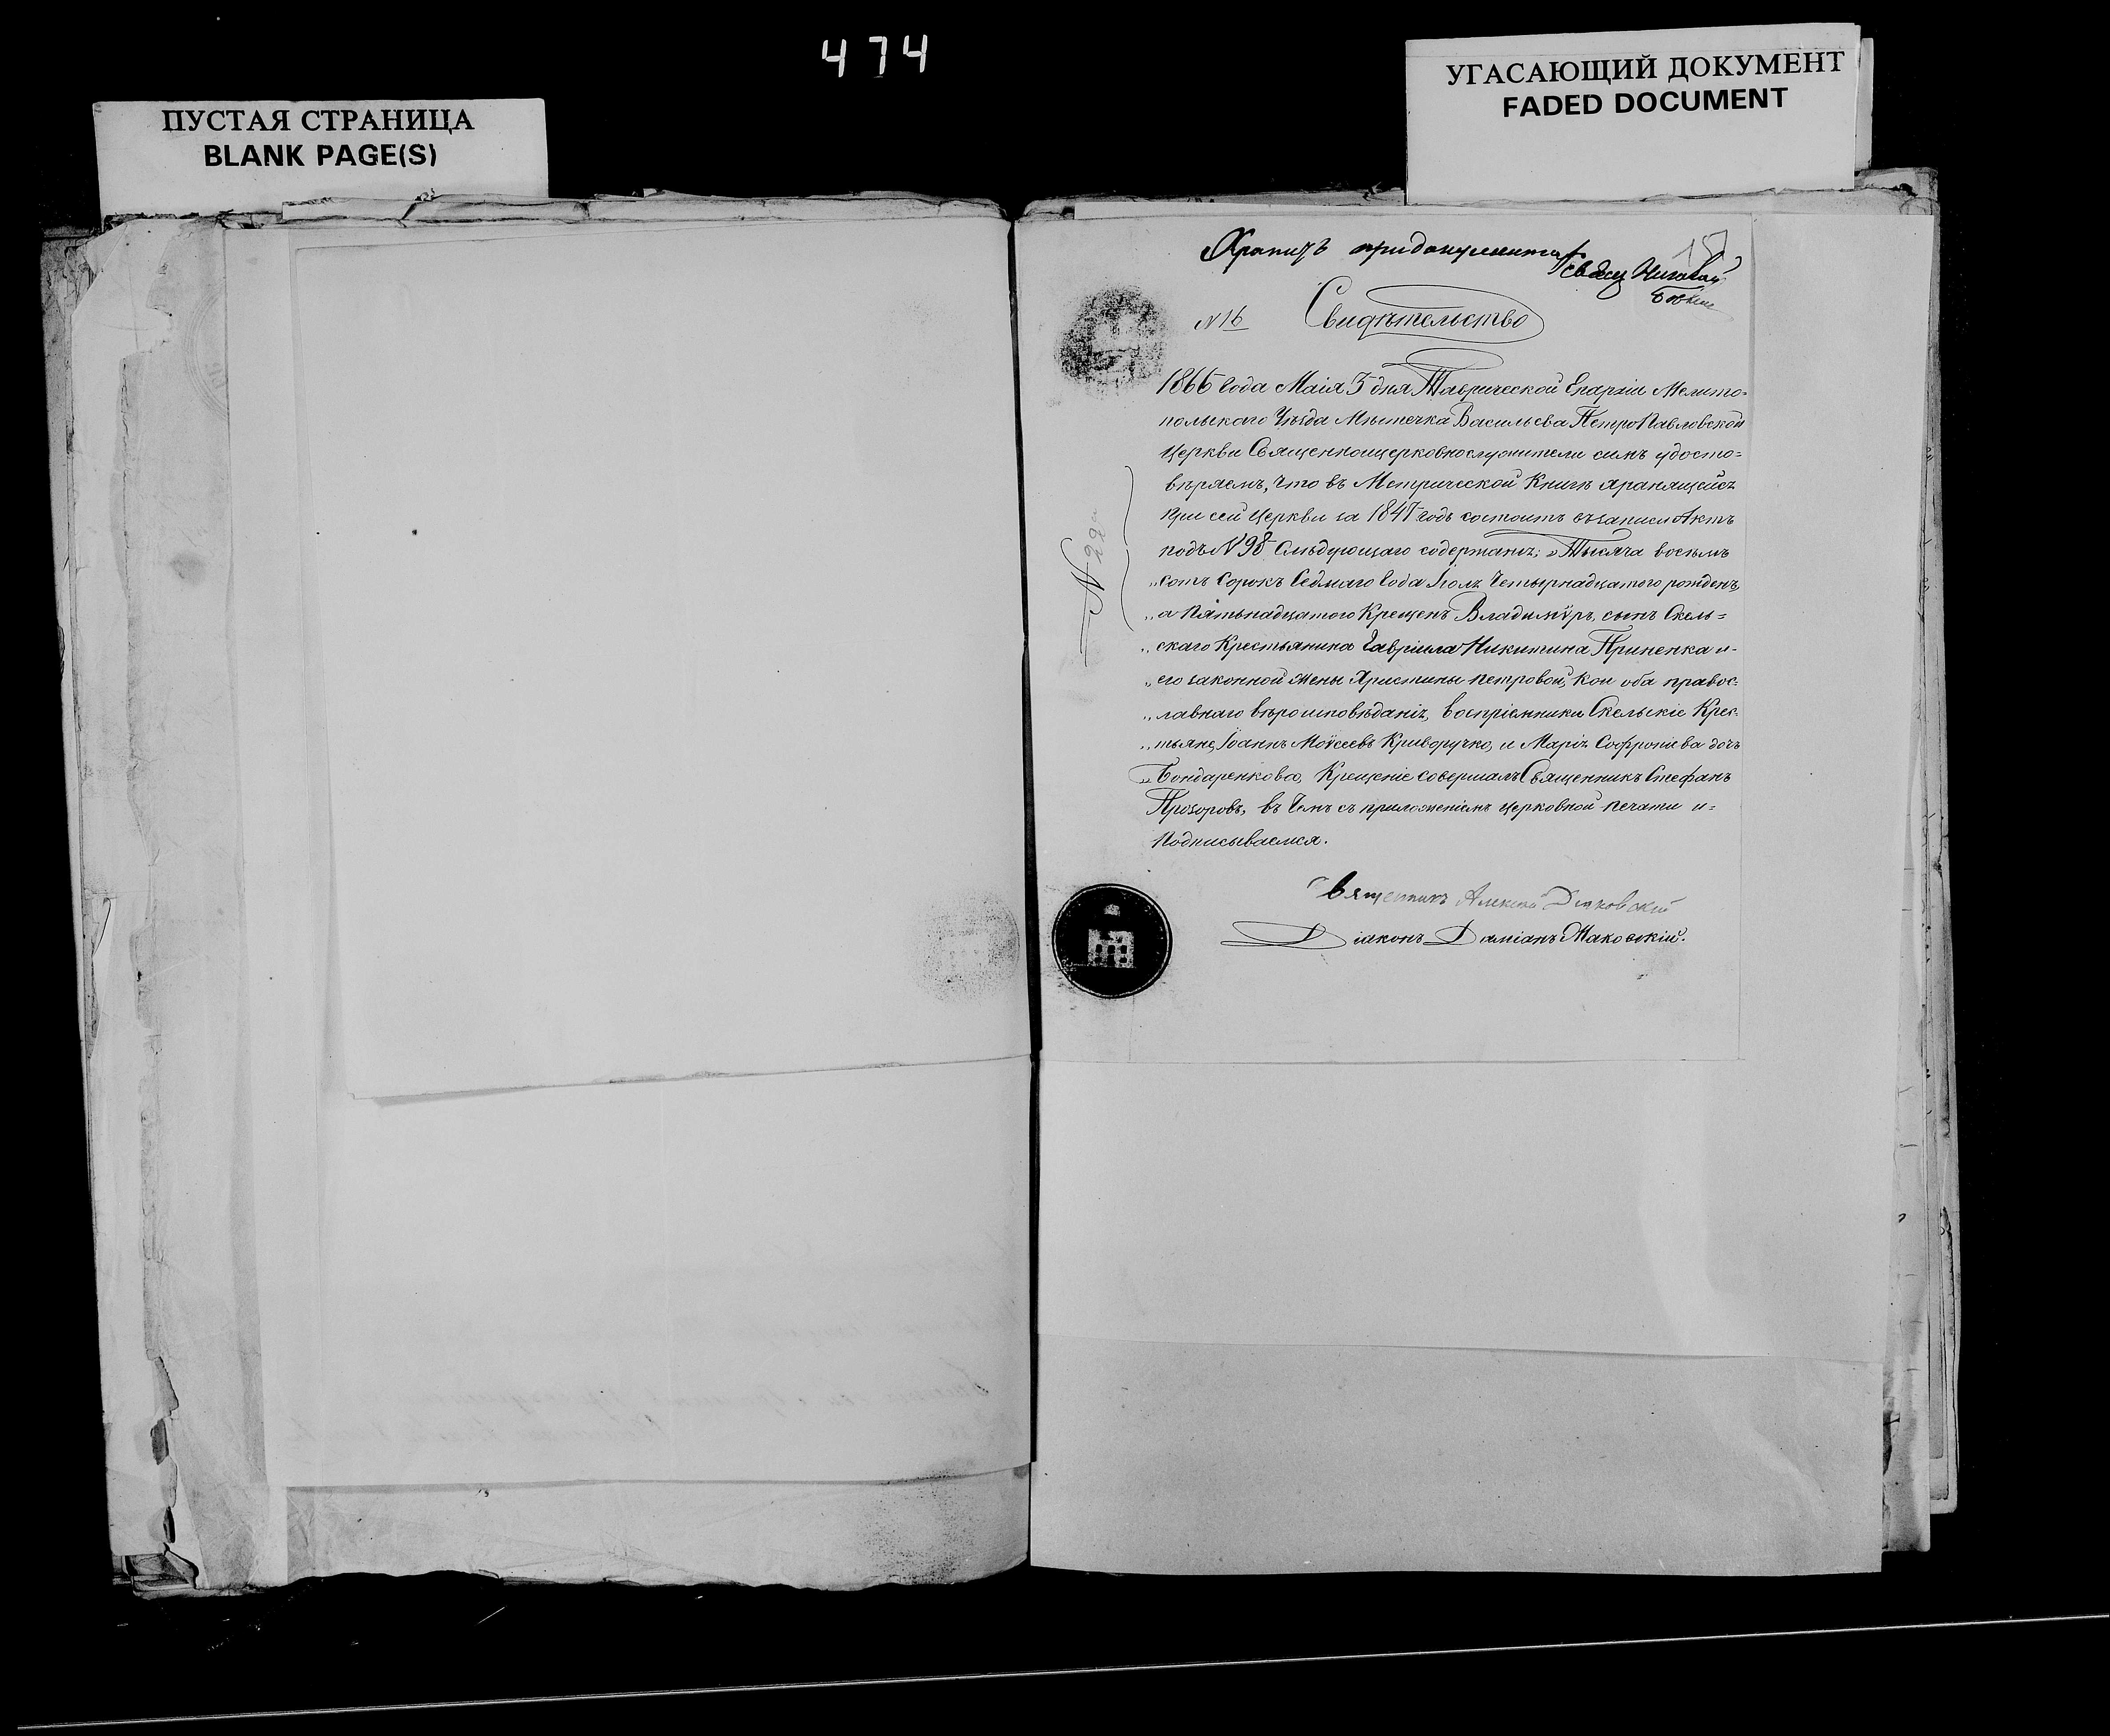 474
ПУСТАЯ СТРАНИЦА
BLANK PAGE(S)
УГАСАЮЩИЙ ДОКУМЕНТ
FADED DOCUMENT
Хранить при документах
17
N 16
Свидѣтельство
1866 года Маія 5 дня Таврической Епархіи Мелито=
польскаго Уѣзда Мѣстечка Васильева ПетроПавловской
Церкви Священноцерковнослужители симъ удосто=
вѣряемъ, что въ Метрической Книгѣ хранящейся
при сей Церкви за 1847 годъ состоитъ въ записи Актъ
подъ N 98 Слѣдующаго содержанія: „Тысяча восемь
„сотъ Сорокъ Седмаго Года Іюля Четырнадцатого рожденъ,
„а Пятьнадцатого Крещенъ Владимѵръ, сынъ Скель=
„скаго Крестьянина Гавріила Никитина Приненка и-
„его законной жены Христины Петровой, кои оба правос=
„лавнаго вѣроисповѣданія, воспріемники Скельскіе Крес=
„тьяне, Іоаннъ Моѵсеевъ Криворучко, и Марія Софроніева дочь
„Бондаренкова, Крещеніе совершалъ Священникъ Стефанъ
Прозоровъ, въ Чемъ съ приложеніемъ церковной печати и=
Подписываемся.
N 22
Священникъ Алексій
Діаконъ Даміанъ Маковскій.